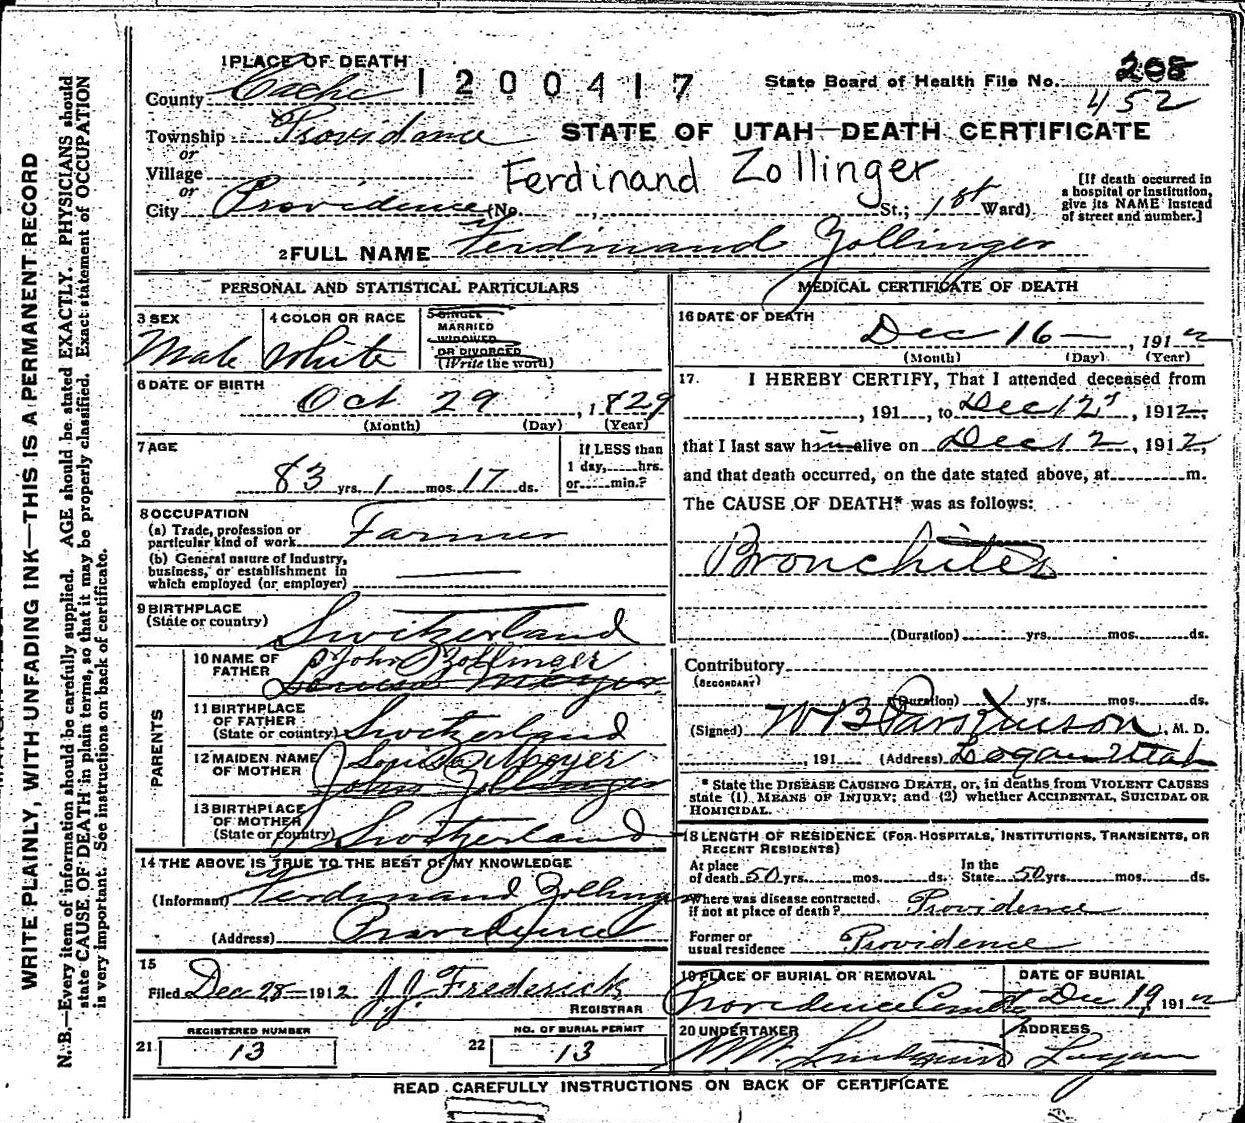 WRITE PLAINLY, WITH UNFADING INK—THIS IS A PERMANENT RECORD
N. B.—Every item of information should be carefully supplied. AGE should be stated EXACTLY. PHYSICIANS should
state CAUSE OF DEATH in plain terms, so that it may be properly classified. Exact statement of OCCUPATION
is very important. See instructions on back of certificate.
1 PLACE OF DEATH
County Cache
1200417
State Board of Health File No. 208
452
Township Providence
or
STATE OF UTAH—DEATH CERTIFICATE
Village
or
Ferdinand Zollinger
City Providence (No. , St.; 1st Ward)
[If death occurred in
a hospital or institution,
give its NAME instead
of street and number.]
2 FULL NAME Ferdinand Zollinger
PERSONAL AND STATISTICAL PARTICULARS
3 SEX
Male
4 COLOR OR RACE
White
5 SINGLE
MARRIED
WIDOWED
OR DIVORCED
(Write the word)
6 DATE OF BIRTH
Oct 29, 1829
(Month) (Day) (Year)
7 AGE
83 yrs. 1 mos. 17 ds.
If LESS than
1 day, hrs.
or min.?
8 OCCUPATION
(a) Trade, profession or
particular kind of work Farmer
(b) General nature of Industry,
business, or establishment in
which employed (or employer)
9 BIRTHPLACE
(State or country) Switzerland
PARENTS
10 NAME OF
FATHER John Zollinger
Louisa Meyer
11 BIRTHPLACE
OF FATHER
(State or country) Switzerland
12 MAIDEN NAME
OF MOTHER Louisa Meyer
John Zollinger
13 BIRTHPLACE
OF MOTHER
(State or country) Switzerland
14 THE ABOVE IS TRUE TO THE BEST OF MY KNOWLEDGE
(Informant) Ferdinand Zollinger
(Address) Providence
15
Filed Dec 28 1912 J.J. Frederick
REGISTRAR
REGISTERED NUMBER
21 13
NO. OF BURIAL PERMIT
22 13
MEDICAL CERTIFICATE OF DEATH
16 DATE OF DEATH
Dec 16, 1912
(Month) (Day) (Year)
17. I HEREBY CERTIFY, That I attended deceased from
, 191 , to Dec 12, 1912,
that I last saw him alive on Dec 12, 1912,
and that death occurred, on the date stated above, at m.
The CAUSE OF DEATH* was as follows:
Bronchites
(Duration) yrs. mos. ds.
Contributory
(SECONDARY)
(Duration) yrs. mos. ds.
(Signed) W B Parkinson, M. D.
, 191 (Address) Logan Utah
* State the DISEASE CAUSING DEATH, or, in deaths from VIOLENT CAUSES
state (1) MEANS OF INJURY; and (2) whether ACCIDENTAL, SUICIDAL OR
HOMICIDAL.
18 LENGTH OF RESIDENCE (FOR HOSPITALS, INSTITUTIONS, TRANSIENTS, OR
RECENT RESIDENTS)
At place
of death 50 yrs. mos. ds.
In the
State 50 yrs. mos. ds.
Where was disease contracted,
if not at place of death? Providence
Former or
usual residence Providence
19 PLACE OF BURIAL OR REMOVAL
Providence
DATE OF BURIAL
Dec 19 1912
20 UNDERTAKER
Lindquist
ADDRESS
Logan
READ CAREFULLY INSTRUCTIONS ON BACK OF CERTIFICATE